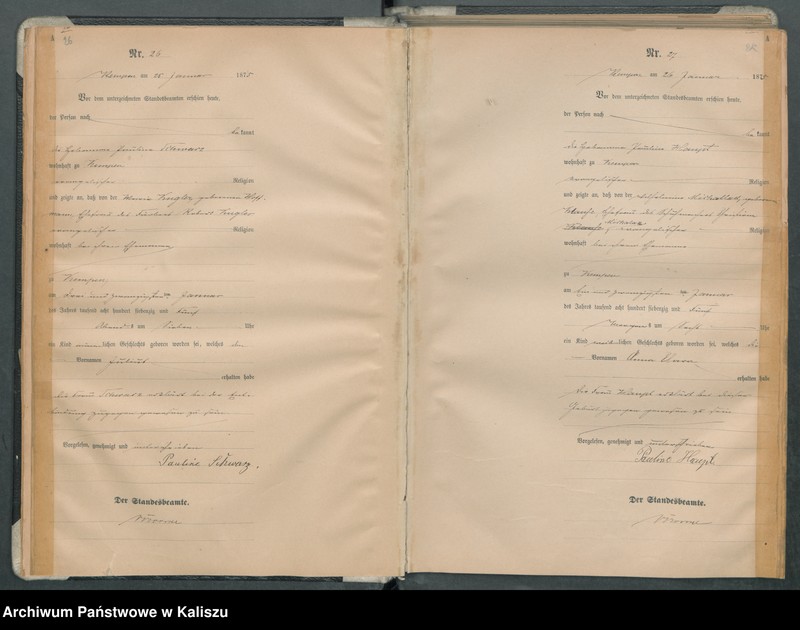 26
Nr. 26
Kempen am 25 Januar 1875
Vor dem unterzeichneten Standesbeamten erschien heute,
der Person nach
bekannt
die Hebamme Pauline Schwarz
wohnhaft zu Kempen
evangelischer Religion
und zeigte an, daß von der Maria
Ehefrau des Robert
evangelischer Religion
wohnhaft bei ihrem Ehemanne
zu Kempen
am zwei und zwanzigsten Januar
des Jahres tausend acht hundert siebenzig und fünf
Abends um sieben Uhr
ein Kind männlichen Geschlechts geboren worden sei, welches den
Vornamen
erhalten habe
die Frau Schwarz erklärt bei der Ent-
bindung zugegen gewesen zu sein
Vorgelesen, genehmigt und unterschrieben
Pauline Schwarz.
Der Standesbeamte.
Nr. 27
Kempen am 26 Januar 1875
Vor dem unterzeichneten Standesbeamten erschien heute,
der Person nach
bekannt
die Hebamme Pauline Haupt
wohnhaft zu Kempen
evangelischer Religion
und zeigte an, daß von der Wilhelmine
Ehefrau des
evangelischer Religion
wohnhaft bei ihrem Ehemanne
zu Kempen
am ein und zwanzigsten Januar
des Jahres tausend acht hundert siebenzig und fünf
Morgens um sechs Uhr
ein Kind weiblichen Geschlechts geboren worden sei, welches die
Vornamen Anna
erhalten habe
die Frau Haupt erklärt bei dieser
Geburt zugegen gewesen zu sein
Vorgelesen, genehmigt und unterschrieben
Pauline Haupt
Der Standesbeamte.
Archiwum Państwowe w Kaliszu